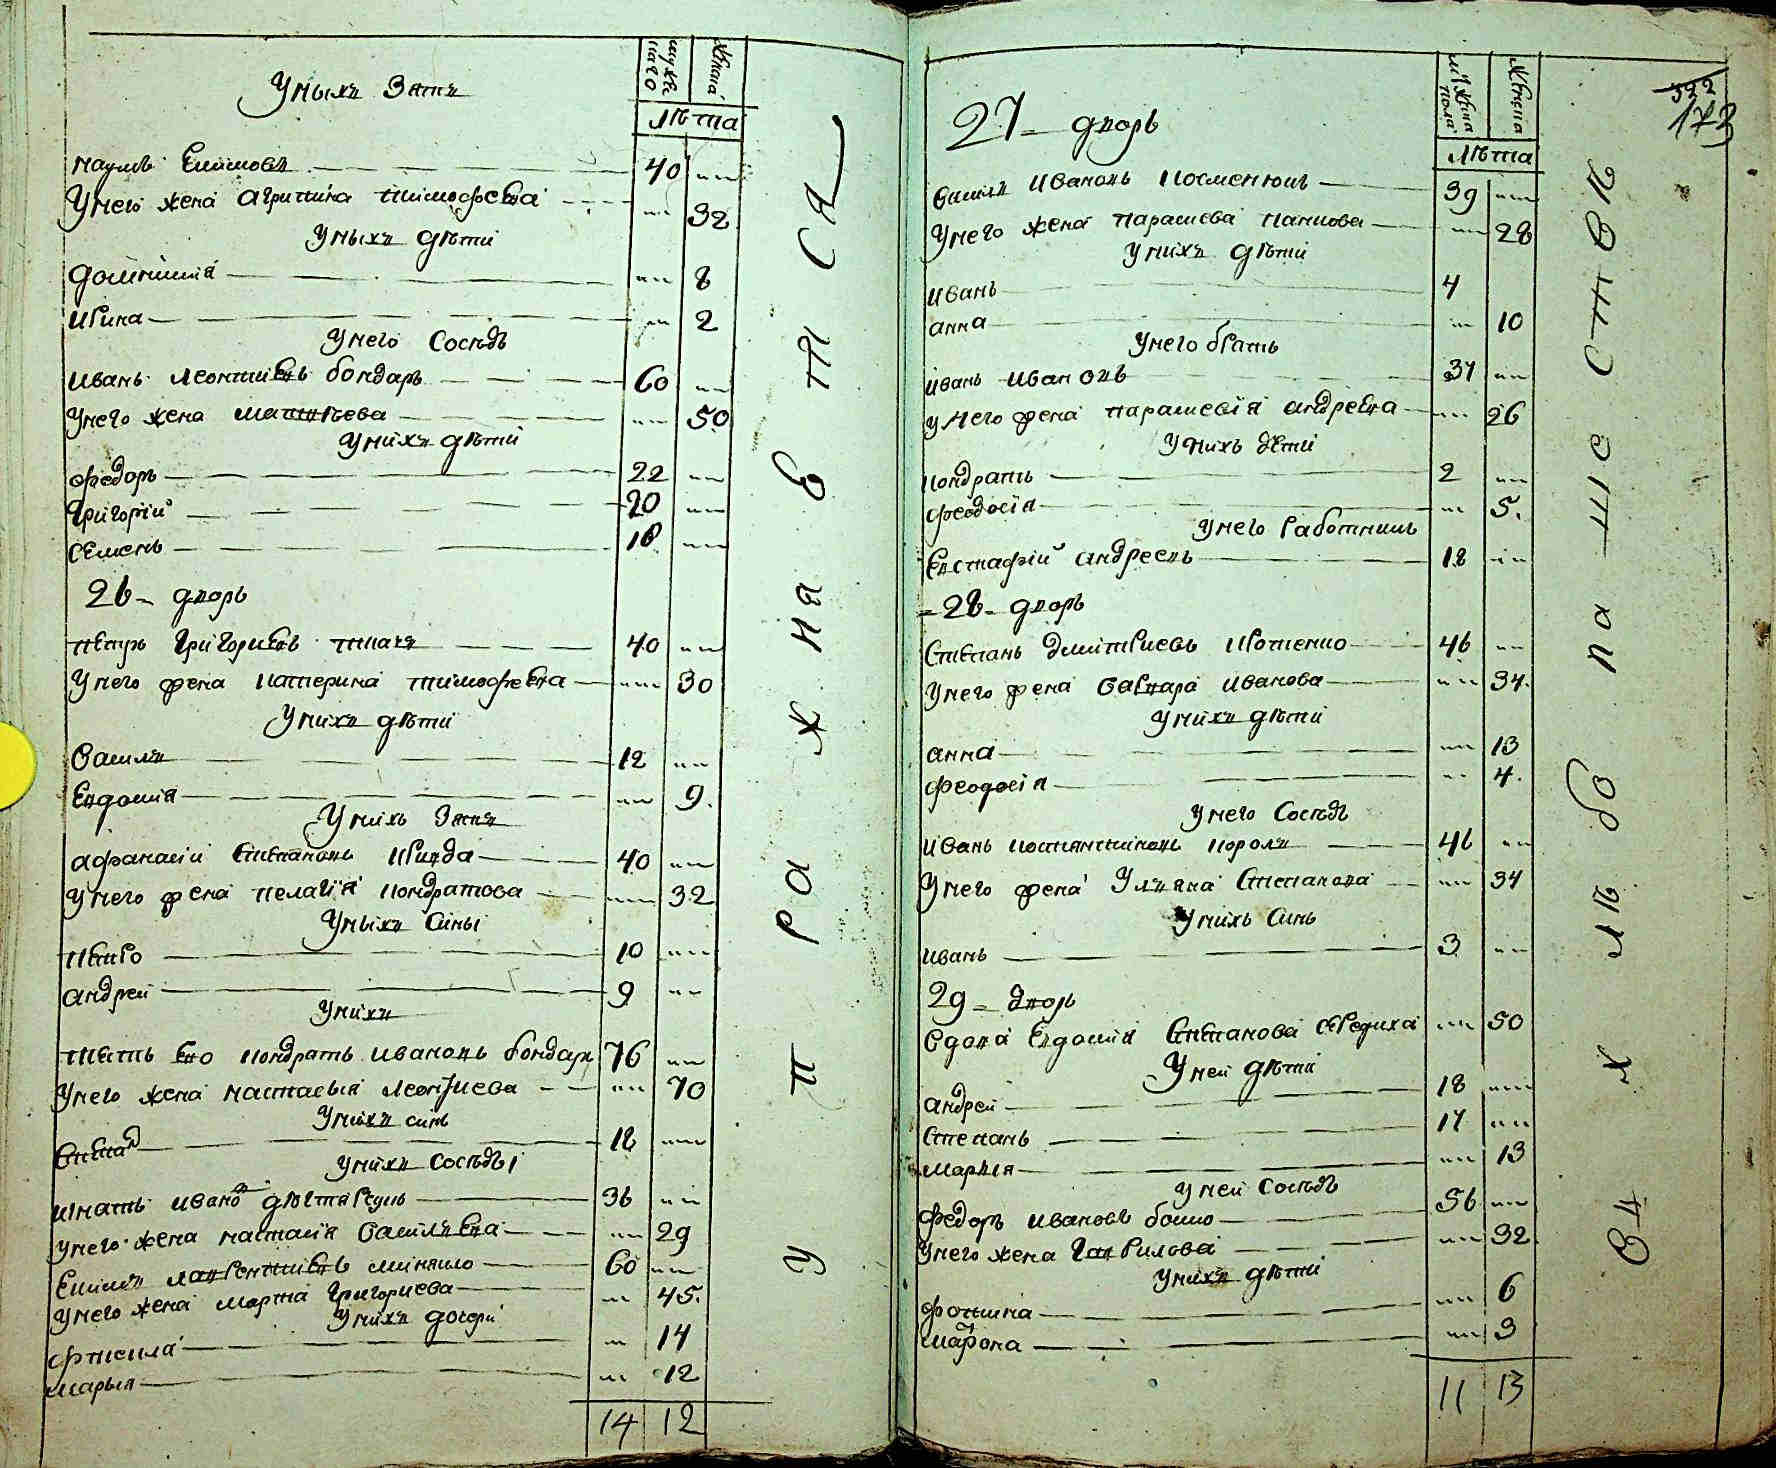 мужеска полъ
женска
лѣта
Уныхъ Зять
наумъ Ефимовъ 40
Унего жена агрипина тимофеева 32
Уныхъ дѣти
домникия 8
ирина 2
Унего Сосѣдъ
иванъ леонтиевъ бондаръ 60
Унего жена матвѣева 50
Унихъ дѣти
федоръ 22
григорїи 20
семенъ 18
26 дворъ
петръ григориевъ ткачъ 40
Унего жена катерина тимофеева 30
Унихъ дѣти
Василъ 12
Евдокия 9
Унихъ Зять
афанасїи Степановъ 40
Унего жена пелагїя кондратова 32
Уныхъ Сины
петро 10
андреи 9
Унихъ
тесть его кондратъ ивановъ бондаръ 76
Унего жена настасья леонтиева 70
Унихъ синъ
Степанъ 18
Унихъ Сосѣды
игнатъ ивановъ 36
Унего жена настасїя Василиева 29
лаврентиевъ 60
Унего жена марта григориева 45
Унихъ дочери
14
марья 12
14 12
управляется
322
173
мужеска пола
женска
лѣта
27 дворъ
Василъ ивановъ 39
Унего жена парасковя 28
Унихъ дѣти
иванъ 4
анна 10
Унего братъ
иванъ ивановъ 31
Унего жена парасковїя андреева 26
Унихъ дѣти
кондратъ 2
феодосїя 5
Унего работникъ
Евстафїи андреевъ 18
28 дворъ
Степанъ дмитриевъ 46
Унего жена Варвара иванова 34
Унихъ дѣти
анна 13
феодосїя 4
Унего Сосѣдъ
иванъ костянтиновъ король 46
Унего жена Улияна Степанова 34
Унихъ Синъ
иванъ 3
29 дворъ
Вдова Евдокия Степанова 50
Унеи дѣти
андреи 18
Степанъ 17
мария 13
Унеи Сосѣдъ
федоръ ивановъ бойко 56
Унего жена гаврилова 32
Унихъ дѣти
фотина 6
3
11 13
хлѣбопашествомъ